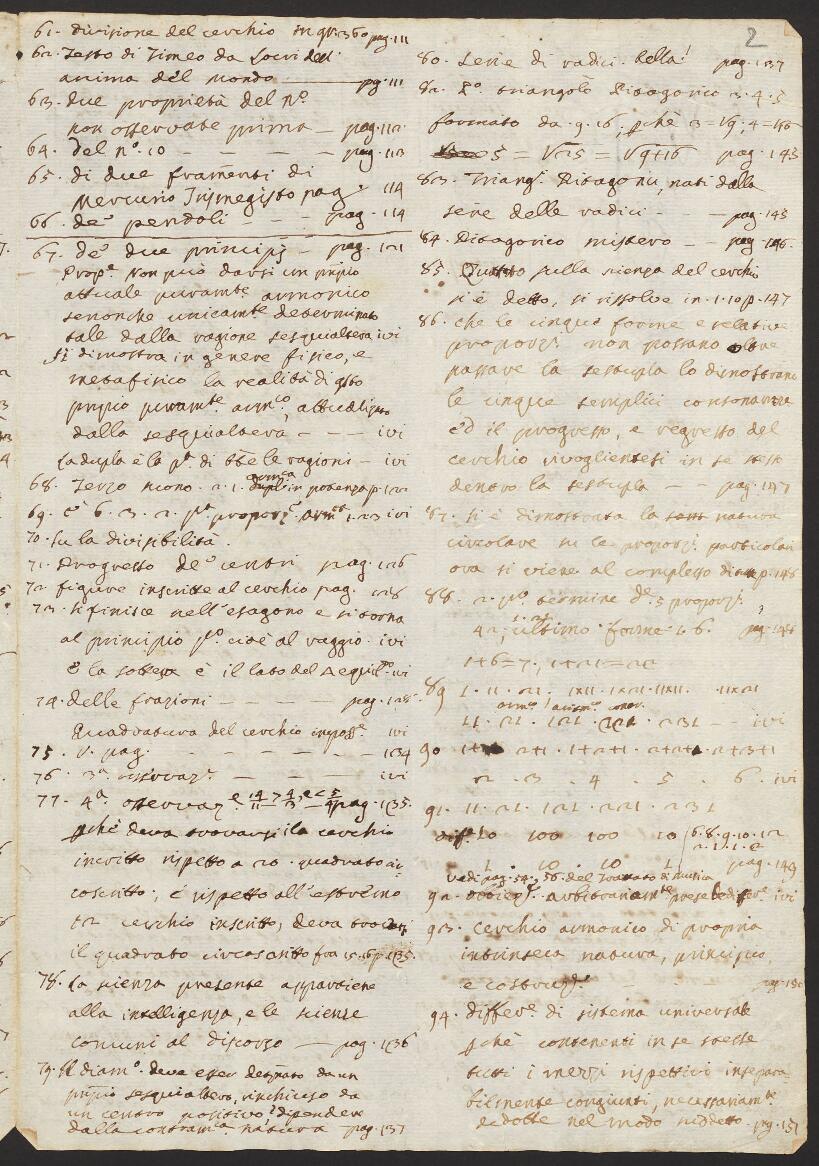 2
61. divisione del cerchio in gr. 360 pag. 111
62. Testo di Timeo da Locri dell'
anima del Mondo — pg. 111
63. due proprietà del n.o
non osservate prima — pag. 112
64. del n.o 10 — — — — pag. 113
65. di due framenti di
Mercurio Trismegisto pag. 114
66. de' pendoli — — — pag. 114
67. de' due principj — pag. 121
Prop.e Non può darsi un pripio
attuale puram.te armonico
senonche unicam.te determinato
tale dalla ragione sesquialtera ivi
si dimostra in genere fisico, e
metafisico la realità di qsto
pripio puram.te arm.co,
dalla sesquialtera — — — ivi
la dupla è la p.a di tte le ragioni — ivi
68. Terzo suono . 2. 1. in potenza p. 122
69. è 6. 3. 2. p.a proporz.e arm.ca 1. 2. 3 ivi
70. su la divisibilità.
71. Progresso de' centri pag. 126
72. figure inscritte al cerchio pag. 128
73. si finisce nell'esagono e si torna
al principio p.o cioè al raggio. ivi
è la sottesa è il lato del Δ equil.o ivi
74. delle frazioni — — — pag. 128
Quadratura del cerchio imposs.e ivi
75. V. pag. — — — — 134
76. 3.a osservaz.e — — — ivi
77. 4.a osservaz.e 14/11 > 4/3, e < 5/4 pag. 135.
pchè deva trovarsi il cerchio
incritto rispetto a 20. quadrato cir
coscritto; è rispetto all'estremo
12 cerchio inscritto, deva trovarsi
il quadrato circoscritto fra 15. 16 p. 135.
78. la scienza presente appartiene
alla intelligenza, e le scienze
comuni al discorso — pag. 136
79. Il diam.o deve esser da un
pripio sesquialtero, rinchiuso da
un centro positivo dipendere
dalla natura pag. 137
80. serie di radici. bella! pag. 137
82. P.o triangolo Pitagorico 3. 4. 5
formato da 9. 16, pchè 3 = √9, 4 = √16
5 = √25 = √9+16 pag. 143
83. Triang.i Pitagorici, nati dalla
serie delle radici — — pag. 145
84. Pitagorico mistero — — pag. 146.
85. Quanto sulla scienza del cerchio
si è detto, si rissolve in . 1. 10 p. 147
86. che le cinque forme e relative
proporz.i non possano oltre
passare la sestupla lo dimostrano
le cinque semplici consonanze
ed il progresso, e regresso del
cerchio in se stesso
dentro la sestupla — pag. 147
87. si è dimostrata la natura
circolare su le proporz.i particolari
ora si viene al complesso p. 148
88. 2. p.o termine de' 5 proporz.i
42, ultimo forme 1. 6. pag. 148
1+6=7; 1+21=22
89 1. 11. 21. 1x11. 1x21. 11x11. 11x21
11. 21. 121. 221. 231 — — ivi
90 2+1. 1+2+1. 2+2+1. 2+3+1
2. 3. 4. 5. 6. ivi
91. 11. 21. 121. 221. 231
diff.e 10 100 100 10 6. 8. 9. 10. 12
2. 1. 1. 2
1. 10. 10. 1. pag. 149
Vedi pag. 54. 56. del Trattato di musica
92. arbitrariam.te prese le differ.e ivi
93. cerchio armonico di propria
intrinseca natura, principio,
e costruz.e — — pg. 150
94. differ.e di sistema universale
pchè contenenti in se stesse
tutti i mezzi rispettivi insepara
bilmente congiunti, necessariam.te
dedotte nel modo suddetto. pg. 151